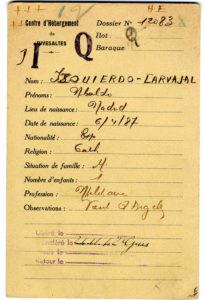 HF
Centre d'Hébergement
de
RIVESALTES
Dossier N° 12083
Ilot:
Baraque
I Q
Nom: IZQUIERDO-CARVAJAL
Prénoms: Ubaldo
Lieu de naissance: Madrid
Date de naissance: 6/4/87
Nationalité: Esp
Religion: Cath
Situation de famille: M
Nombre d'enfants: 1
Profession: Militaire
Observations:
Libéré le
Transféré le
Evadé le
Retour le